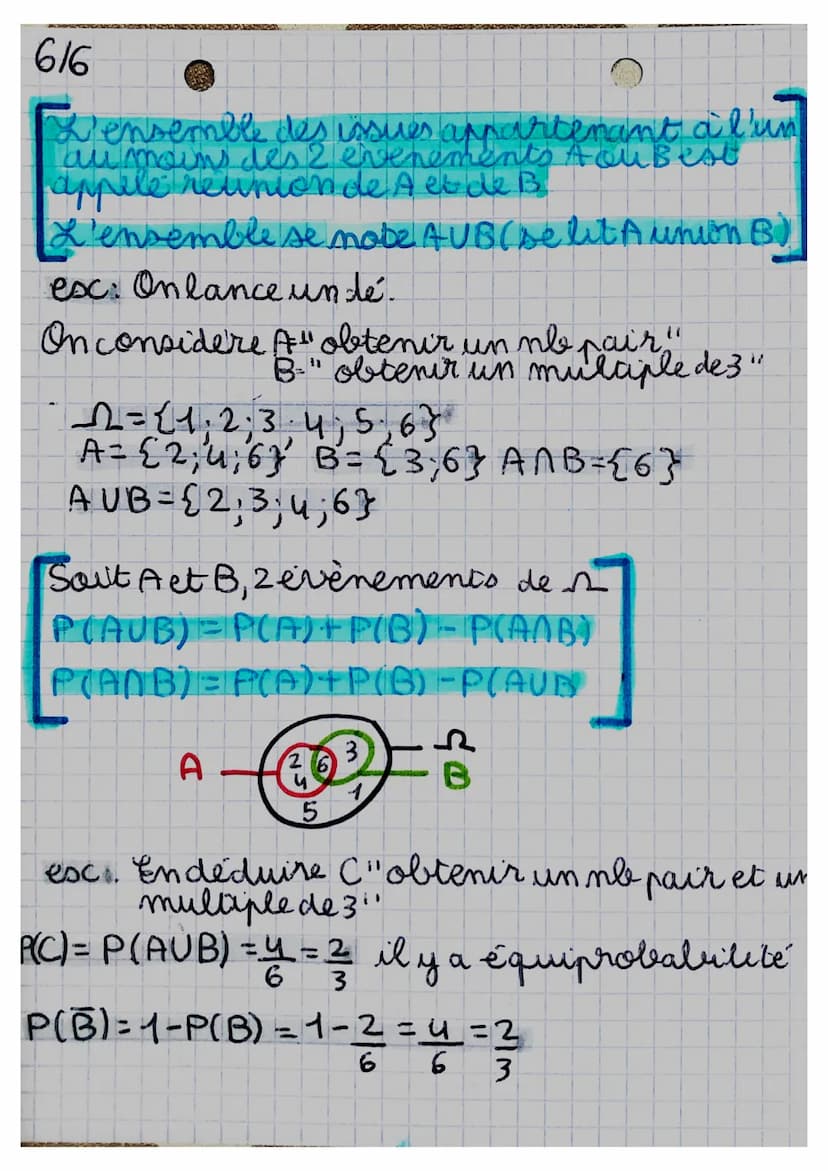 6/6
L'ensemble des issues appartenant à l'un
au moins des 2 évènements A ou B est
appelé réunion de A et de B.
L'ensemble se note A∪B (se lit A union B)
ex: On lance un dé.
On considère A=" obtenir un nb pair"
B=" obtenir un multiple de 3"
Ω={1;2;3;4;5;6}
A={2;4;6} B={3;6} A∩B={6}
A∪B={2;3;4;6}
Soit A et B, 2 évènements de Ω
P(A∪B)=P(A)+P(B)-P(A∩B)
P(A∩B)=P(A)+P(B)-P(A∪B
A 2 4 6 3 1 5 Ω
B
ex: En déduire C "obtenir un nb pair et un
multiple de 3"
P(C)=P(A∪B)=4/6=2/3 il y a équiprobabilité
P(B̄)=1-P(B)=1-2/6=4/6=2/3